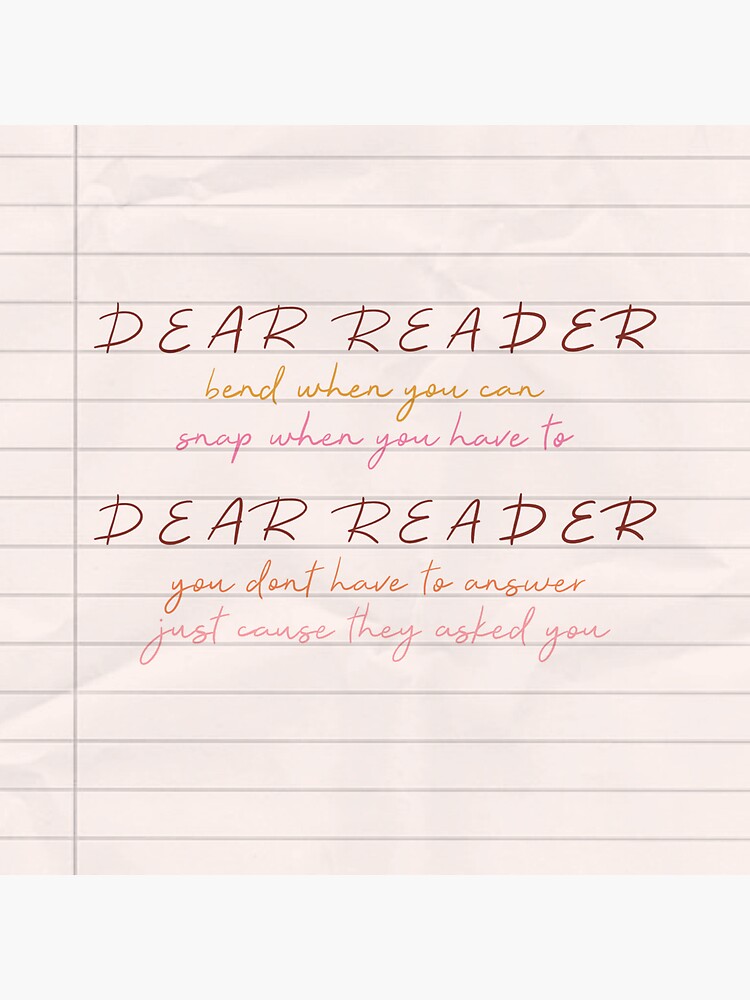 DEAR READER
bend when you can
snap when you have to
DEAR READER
you dont have to answer
just cause they asked you